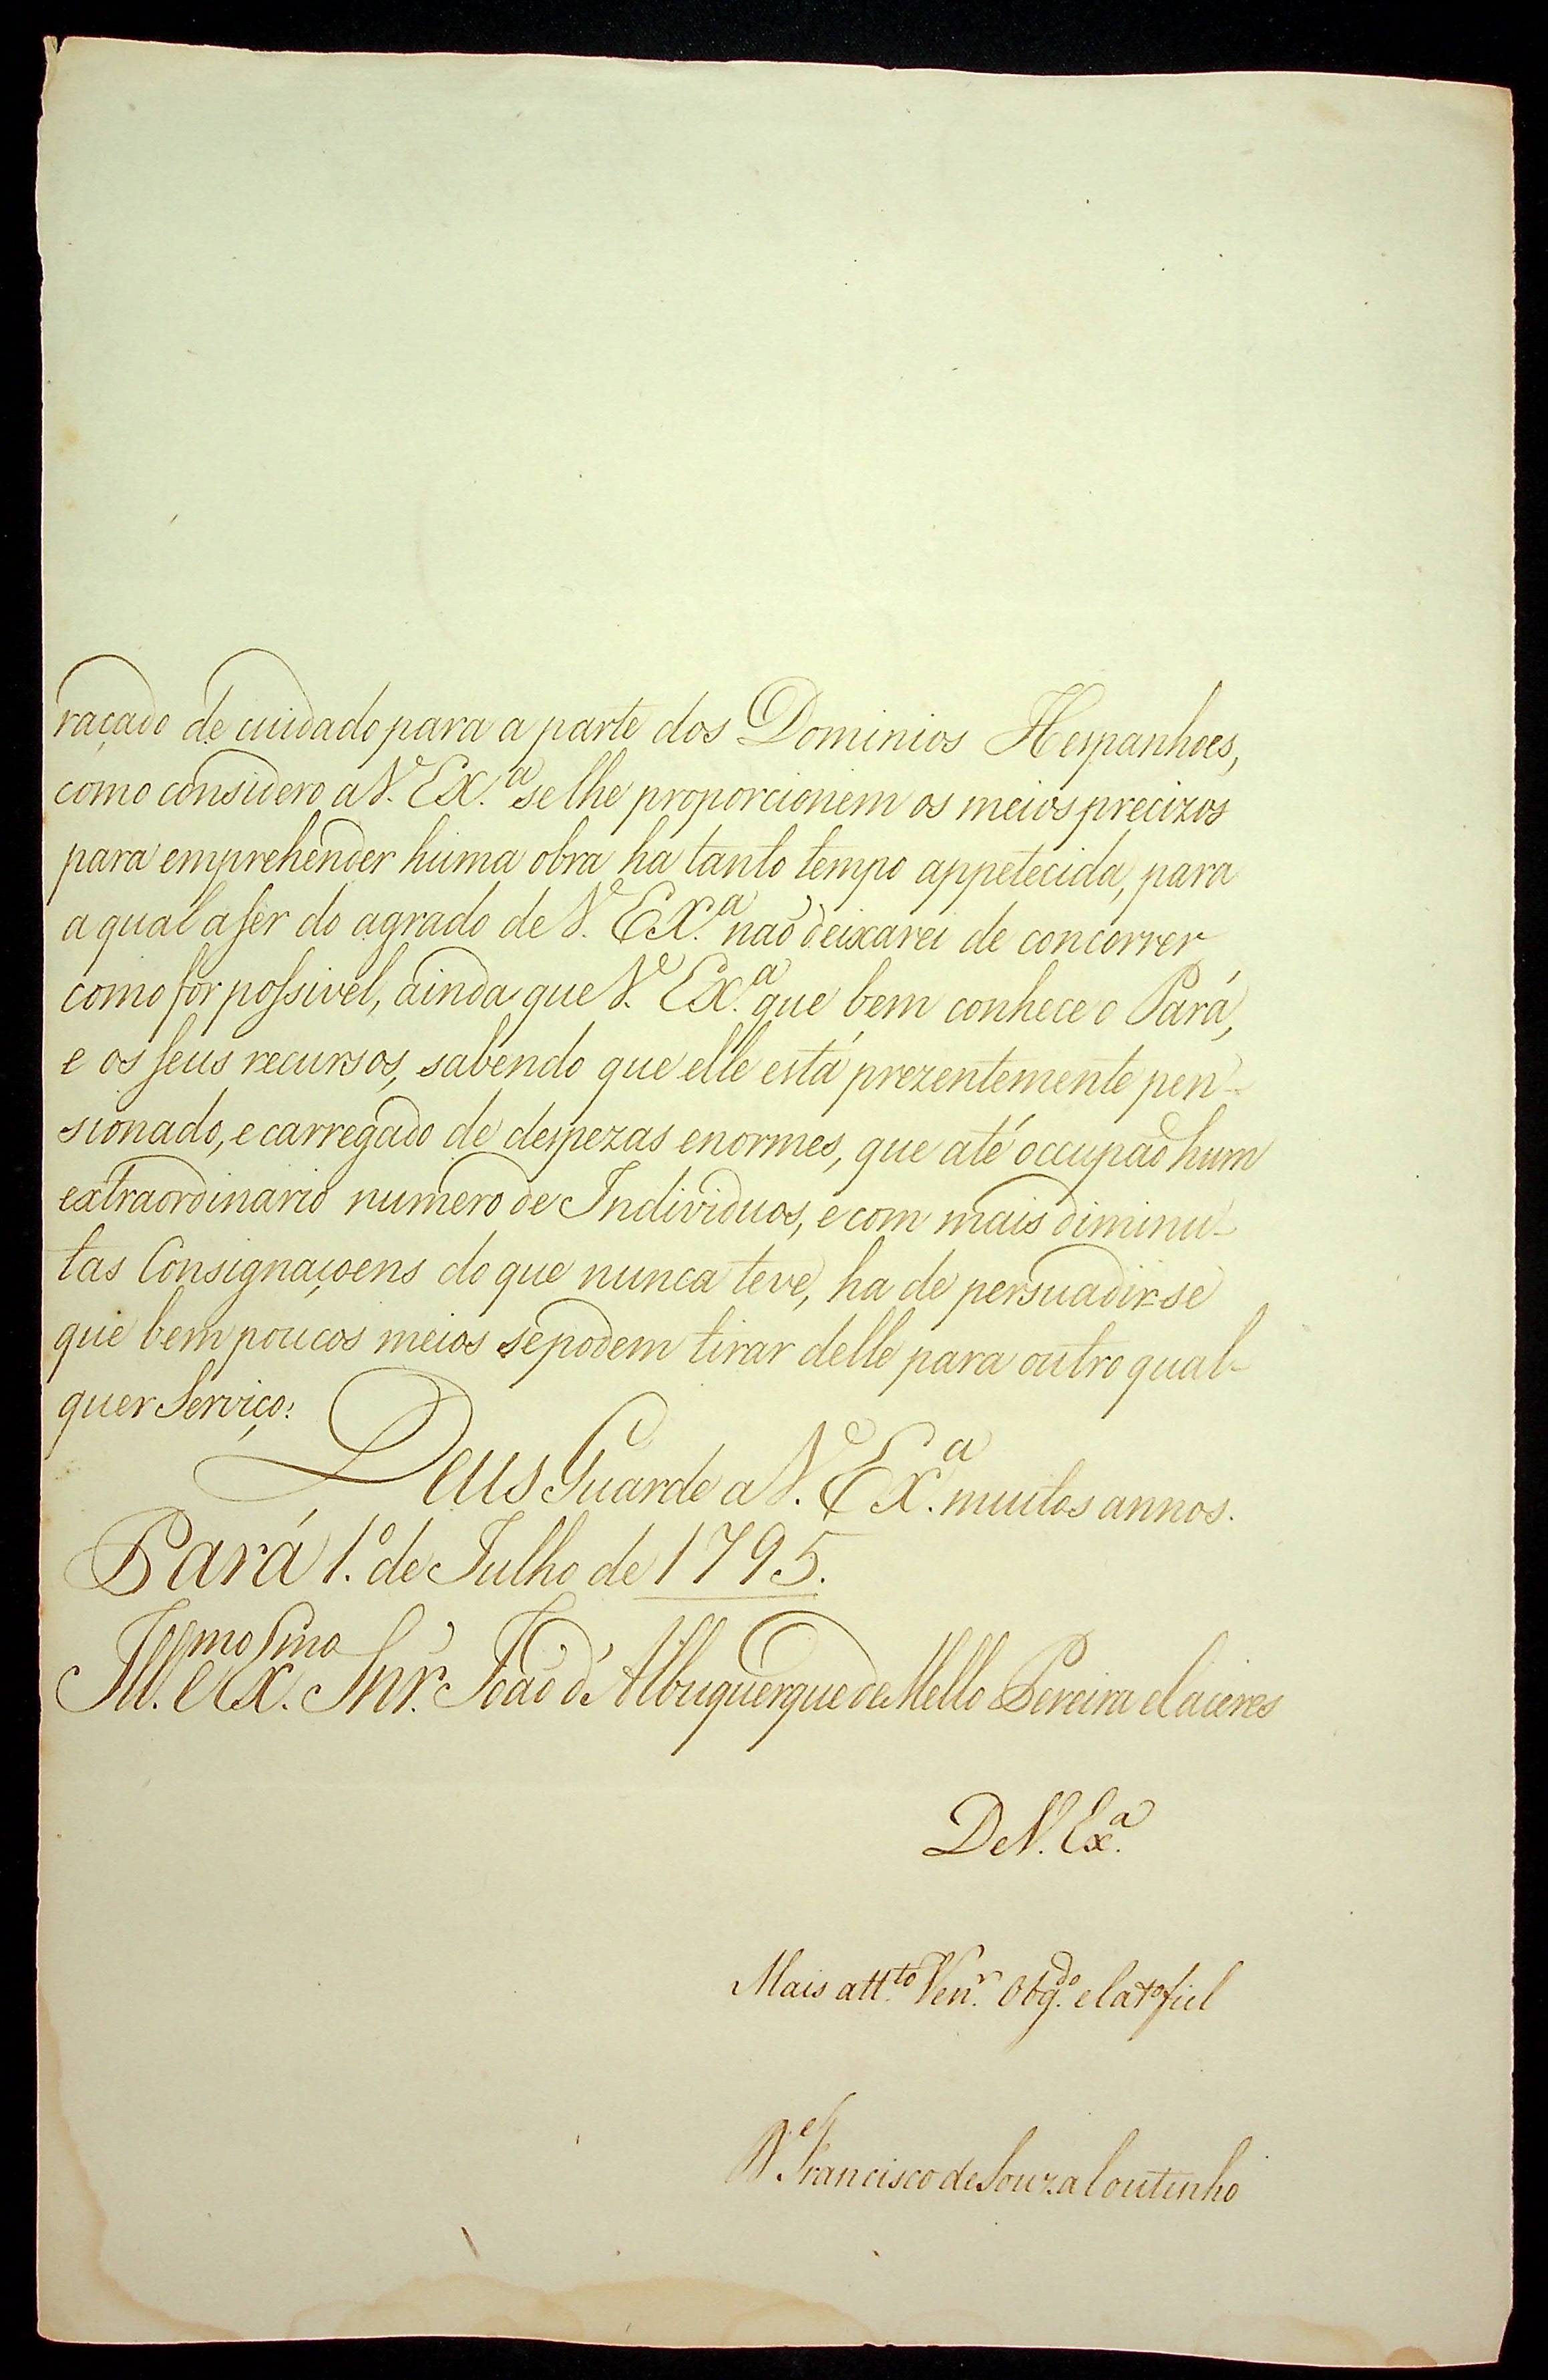 raçado de cuidado para a parte dos Dominios Hespanhoes,
como considero a V. Ex.ª se lhe proporcionem os meios precizos
para emprehender huma obra ha tanto tempo appetecida, para
a qual a ser do agrado de V. Ex.ª não deixarei de concorrer
como for possivel, ainda que V. Ex.ª que bem conhece o Pará,
e os seus recursos, sabendo que elle está prezentemente pen-
sionado, e carregado de despezas enormes, que até occupão hum
extraordinario numero de Individuos, e com mais diminu-
tas Consignaçoens do que nunca teve, ha de persuadir-se
que bem poucos meios se podem tirar delle para outro qual-
quer Serviço:
Deus Guarde a V. Ex.ª muitos annos.
Pará 1.º de Julho de 1795.
Ill.mo e Ex.mo Snr. João d'Albuquerque de Mello Pereira e Caceres
De V. Ex.ª
Mais att.to Ven.r Obg.do e fiel
Francisco de Souza Coutinho